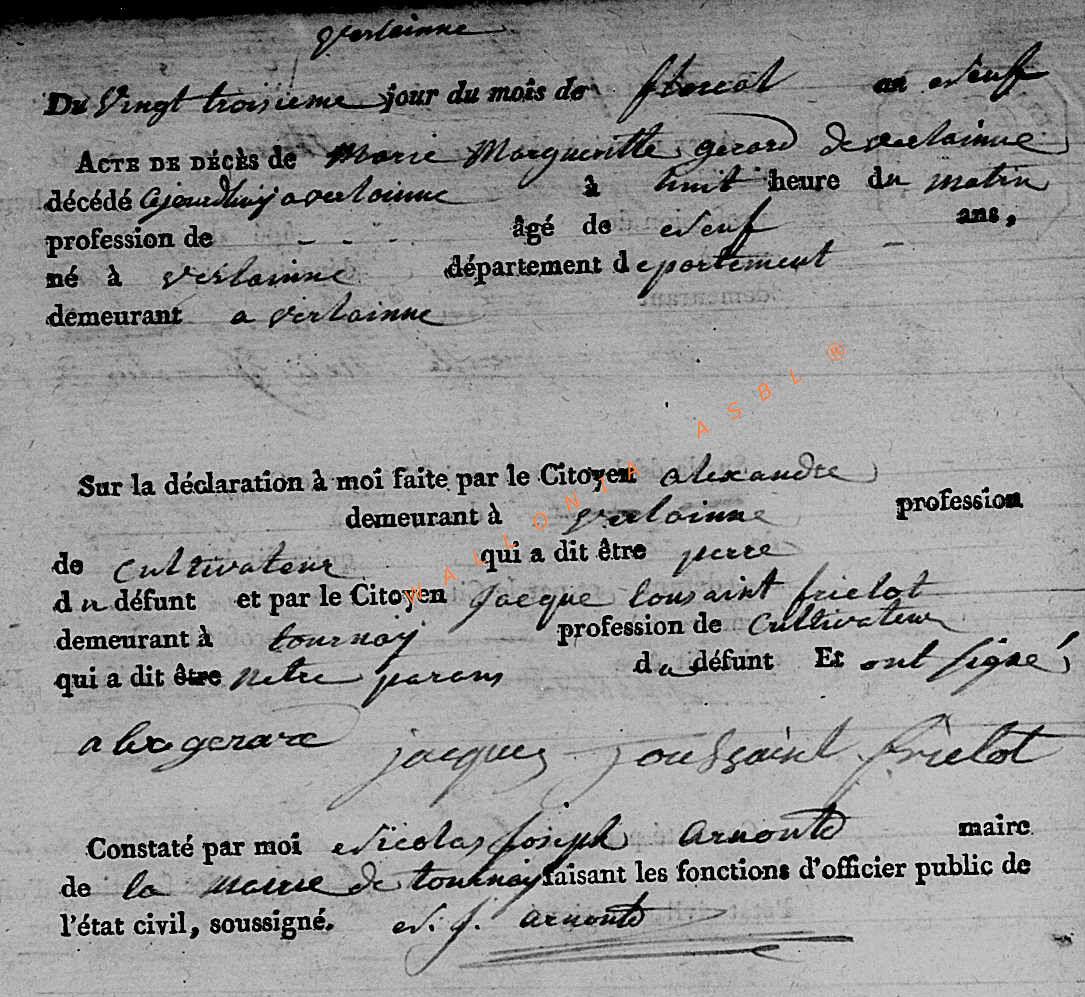 verlainne
Du Vingt troisieme jour du mois de floreal an neuf
ACTE DE DÉCÈS de Marie Margueritte gerard de verlainne
décédé ajourdhuy a verlainne à huit heure du matin
profession de - - - - âgé de neuf ans,
né à verlainne département departement
demeurant a verlainne
Sur la déclaration à moi faite par le Citoyen alexandre
demeurant à verlainne profession
de cultivateur qui a dit être perre
du défunt et par le Citoyen jacque tousaint frielot
demeurant à tournay profession de cultivateur
qui a dit être notre parans du défunt Et ont signé
alex gerard jacques toussaint frielot
Constaté par moi Nicolas joseph arnould maire
de la mairie de tournay faisant les fonctions d'officier public de
l'état civil, soussigné. N. j. arnould
WALLONIA ASBL ®